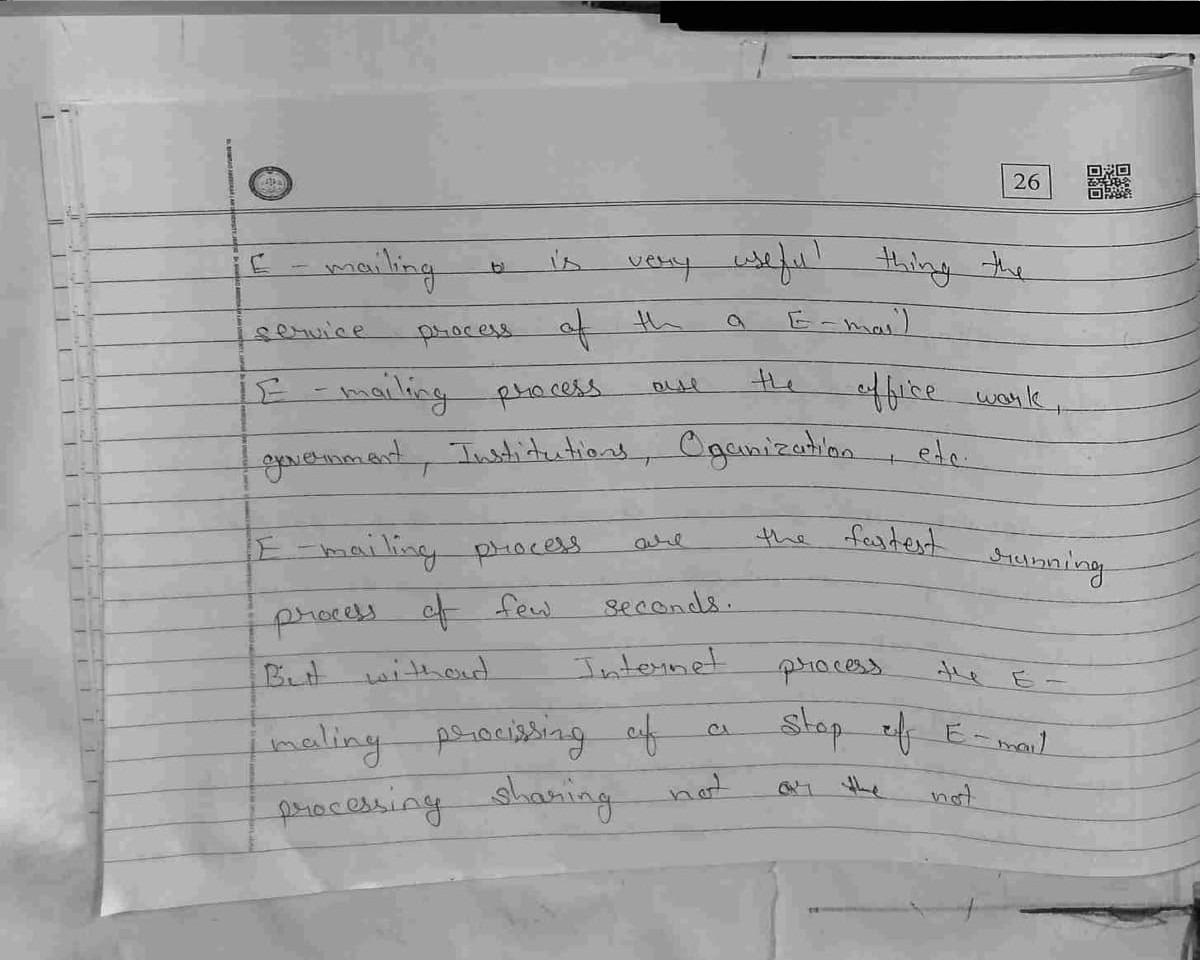 26
E-mailing is very useful thing the
service process of th a E-mail
E-mailing process are the office work,
government, Institutions, Oganization, etc.
E-mailing process are the fastest running
process of few seconds.
But without Internet process the E-
maling procissing of a stop of E-mail
processing sharing not or the not